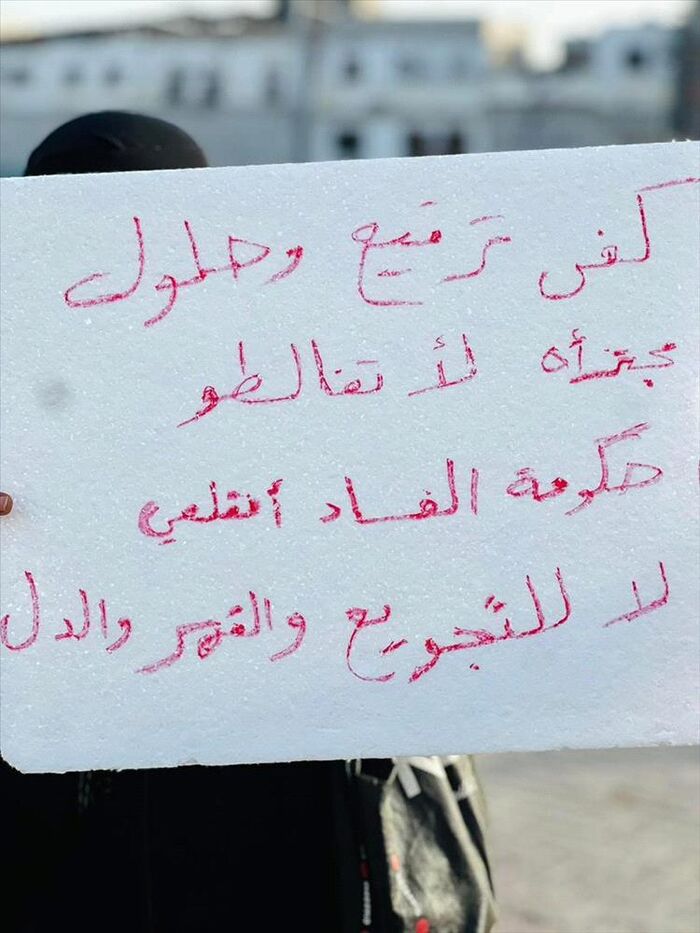 كفى ترقيع وحلول
مجتزأه لأ تغالطو
حكومة الفساد أنقلعي
لا للتجويع والقهر والدل